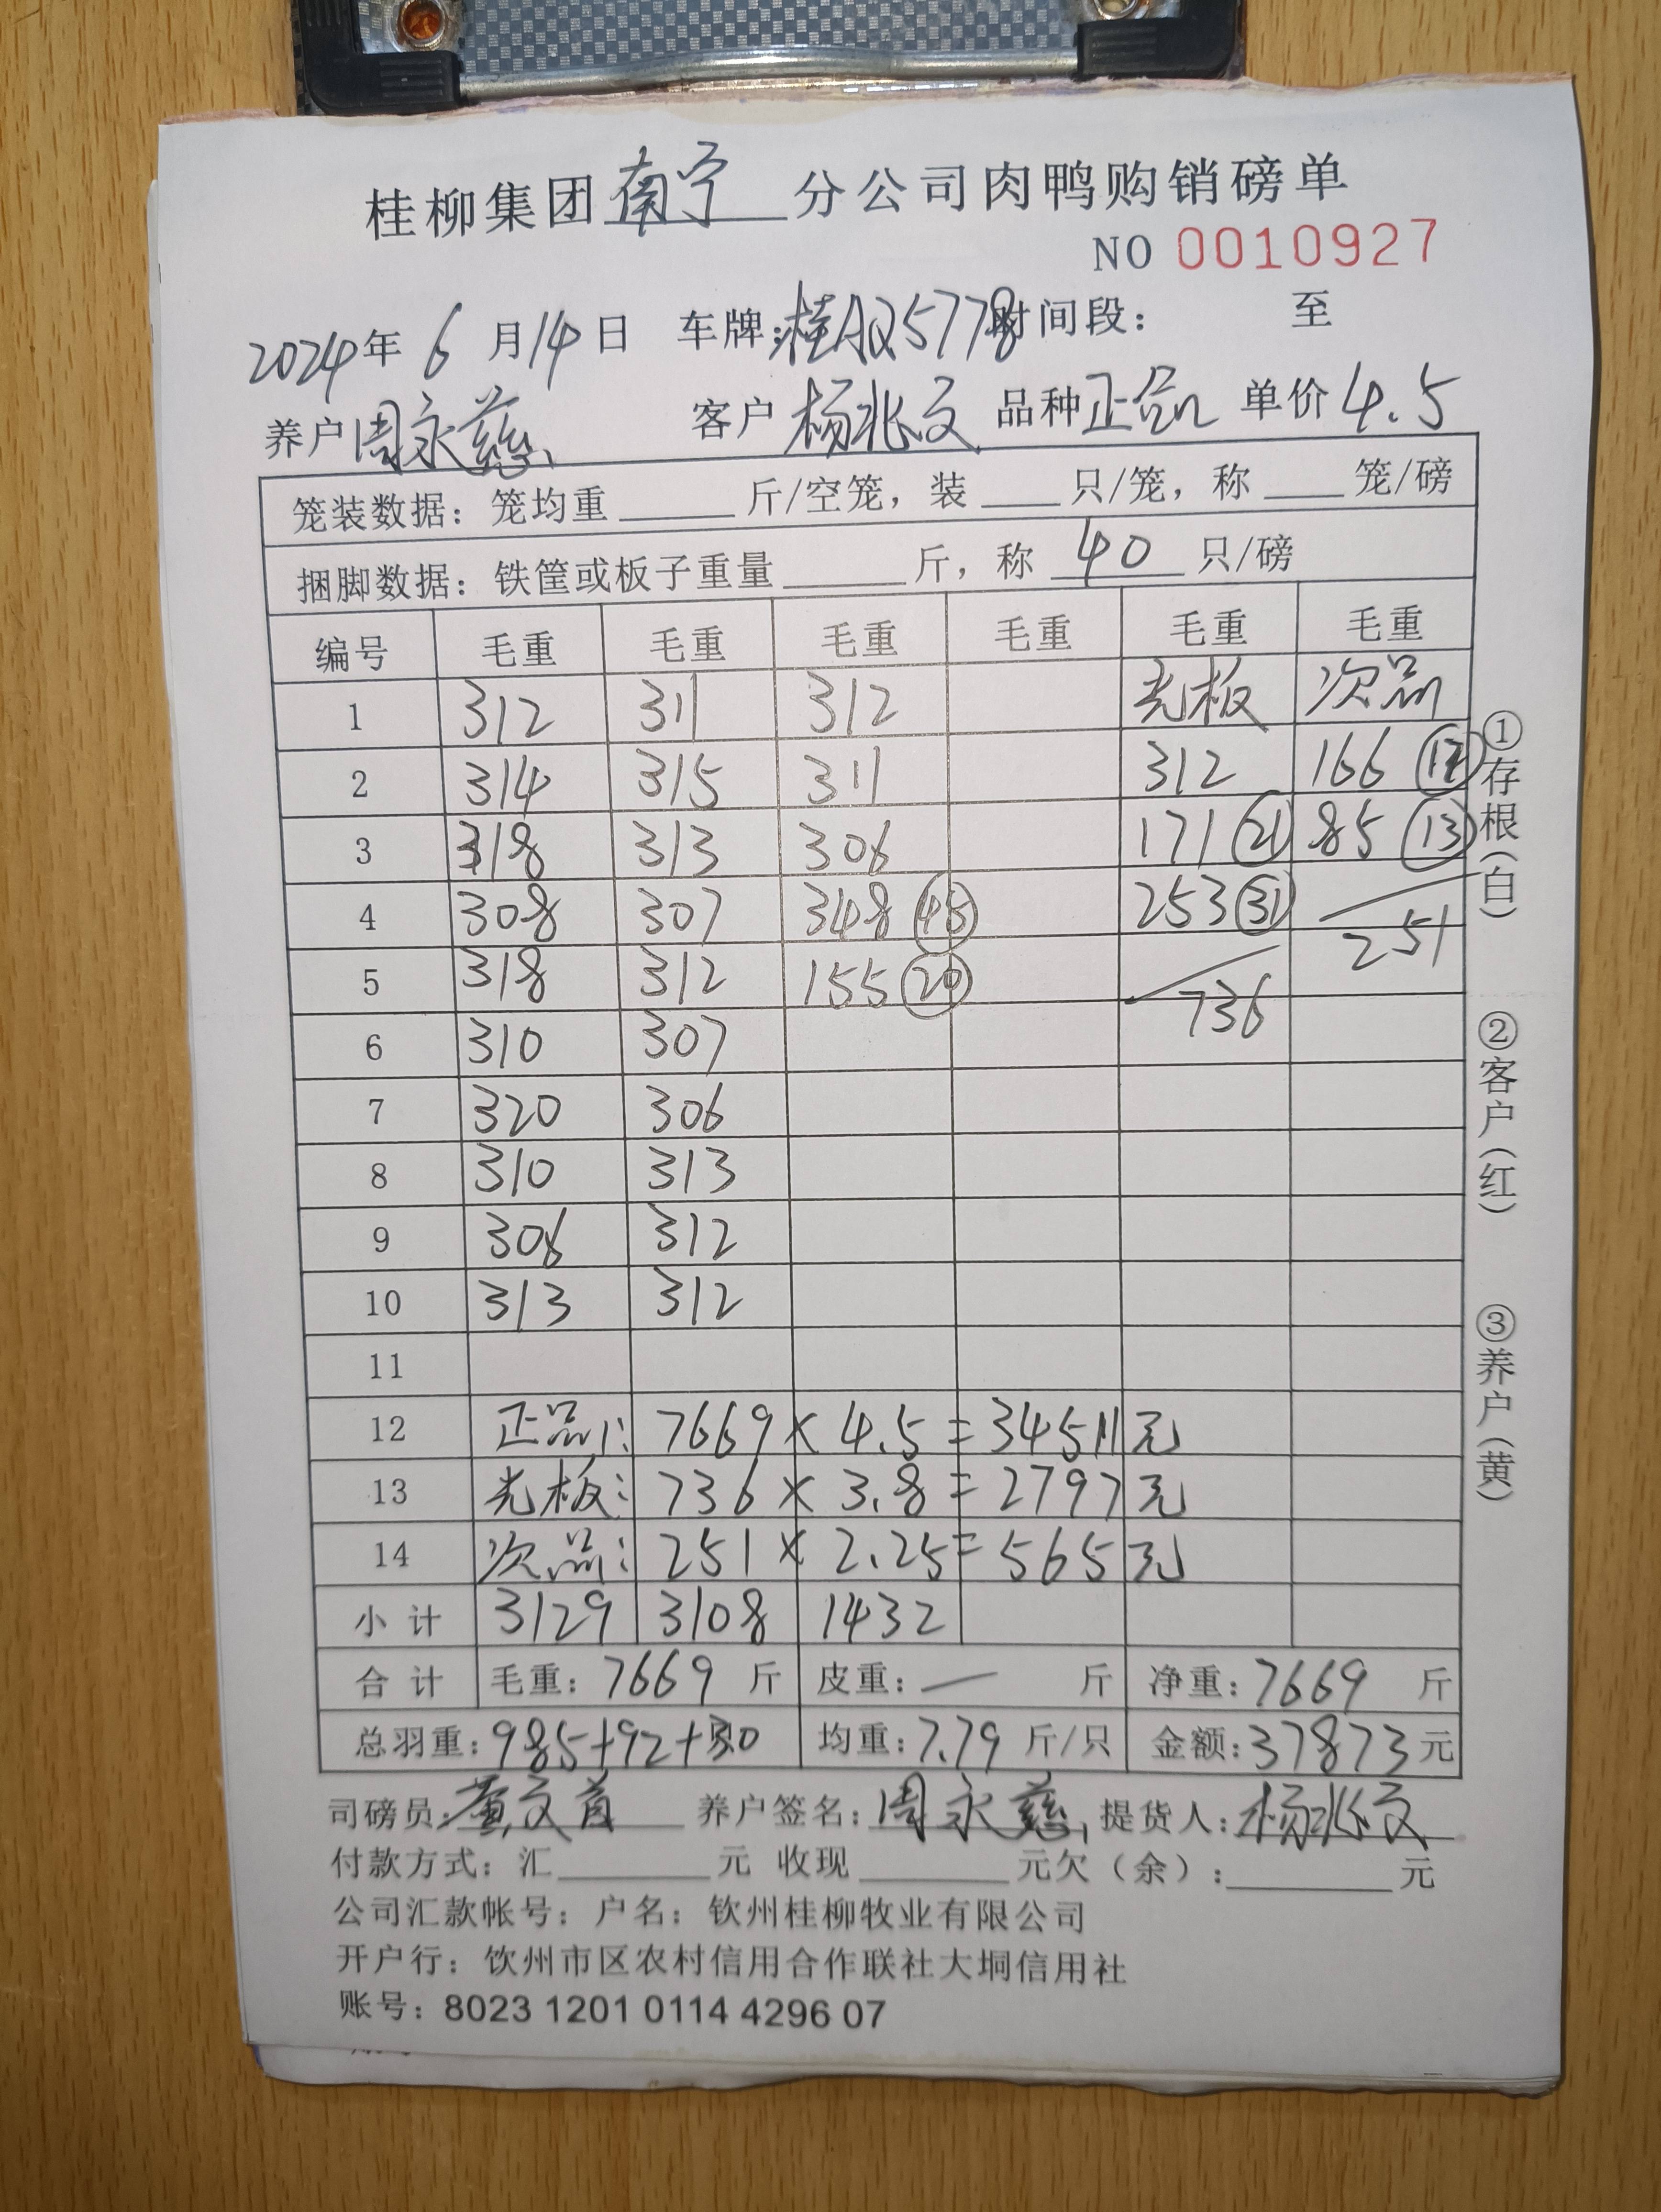 桂柳集团南宁分公司肉鸭购销磅单
NO 0010927
2024年 6 月14日 车牌:桂AQ5778时间段: 至
养户周永慈 客户 杨兆文 品种正品 单价4.5
笼装数据: 笼均重______斤/空笼, 装____只/笼, 称____笼/磅
捆脚数据: 铁筐或板子重量______斤, 称 40 只/磅
编号 毛重 毛重 毛重 毛重 毛重 毛重
1 312 311 312 光板 次品
2 314 315 311 312 166
3 318 313 306 171 (21) 85 (13)
4 308 307 348 (45) 253 (31)
251
5 318 312 155 (20)
736
6 310 307
7 320 306
8 310 313
9 306 312
10 313 312
11
12 正品: 7669 × 4.5 = 34511元
13 光板: 736 × 3.8 = 2797元
14 次品: 251 × 2.25 = 565元
小计 3129 3108 1432
合计 毛重: 7669 斤 皮重: — 斤 净重: 7669 斤
总羽重: 985+92+30 均重: 7.79 斤/只 金额: 37873元
司磅员: 黄文 养户签名: 周永慈 提货人: 杨兆文
付款方式: 汇______元 收现______元欠(余):______元
公司汇款帐号: 户名: 钦州桂柳牧业有限公司
开户行: 钦州市区农村信用合作联社大垌信用社
账号: 8023 1201 0114 4296 07
①存根(白)
②客户(红)
③养户(黄)